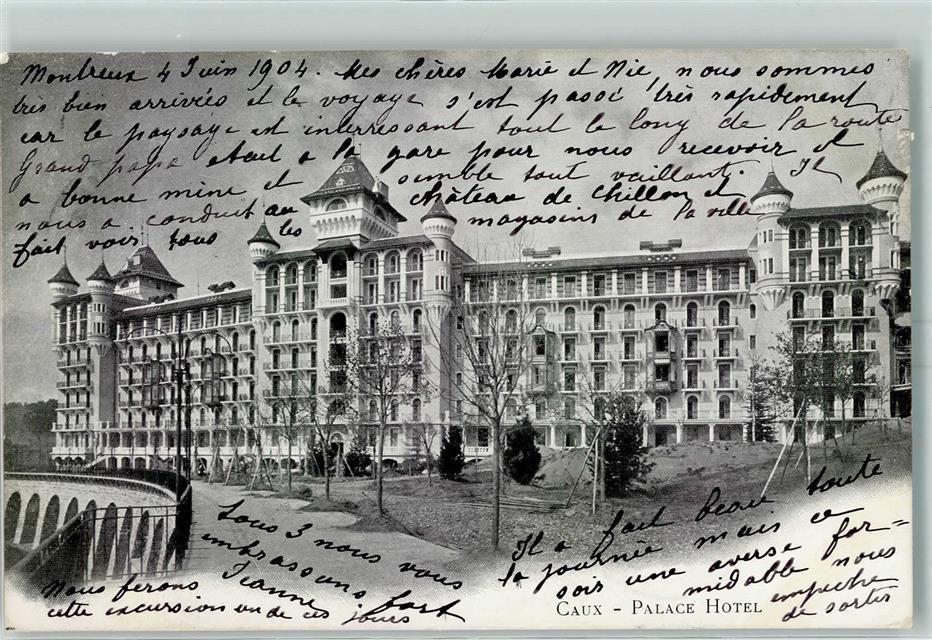 Montreux 4 Juin 1904. Mes chères Marie et Nie, nous sommes
très bien arrivés et le voyage s'est passé très rapidement
car le paysage est interressant tout le long de la route
Grand papa était à la gare pour nous recevoir et
a bonne mine et semble tout vaillant. Il
nous a conduit au château de Chillon et
fait voir tous les magasins de la ville
Il a fait beau toute
la journée mais ce
soir une averse for=
midable nous
empêche
de sortir
Tous 3 nous vous
embrassons fort
Jeanne
Nous ferons
cette excursion un de ces jours
CAUX - PALACE HOTEL